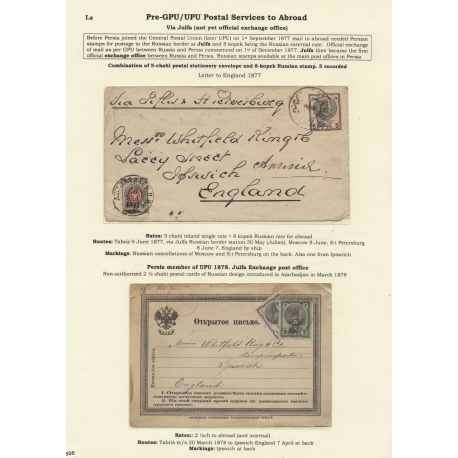 La
Pre-GPU/UPU Postal Services to Abroad
Via Julfa (not yet official exchange office)
Before Persia joined the General Postal Union (later UPU) on 1st September 1877 mail to abroad needed Persian
stamps for postage to the Russian border at Julfa and 8 kopek being the Russian external rate. Official exchange
of mail as per GPU between Russia and Persia commenced on 1st of December 1877. Julfa then became the first
official exchange office between Persia and Russia. Russian stamps available at the main post offices in Persia
Combination of 5-chahi postal stationery envelope and 8-kopek Russian stamp. 5 recorded
Letter to England 1877
Via Tiflis & St Petersburg
Messrs Whitfield King & Co
Lacey Street
Ipswich
England
Rates: 5 chahi inland single rate + 8 kopek Russian rate for abroad
Routes: Tabriz 9 June 1877, via Julfa Russian border station 30 May (Julian), Moscow 8 June, S:t Petersburg
8 June ?, England by ship
Markings: Russian cancellations of Moscow and S:t Petersburg on the back. Also one from Ipswich
Persia member of UPU 1878. Julfa Exchange post office
Non-authorized 2 ½ chahi postal cards of Russian design introduced in Azarbadjan in March 1878
Открытое письмо.
Messrs Whitfield King & Co
Ipswich
England
Rates: 2 ½ch to abroad (and internal)
Routes: Tabriz m/s 20 March 1878 to Ipswich England 7 April at back
Markings: Ipswich at back